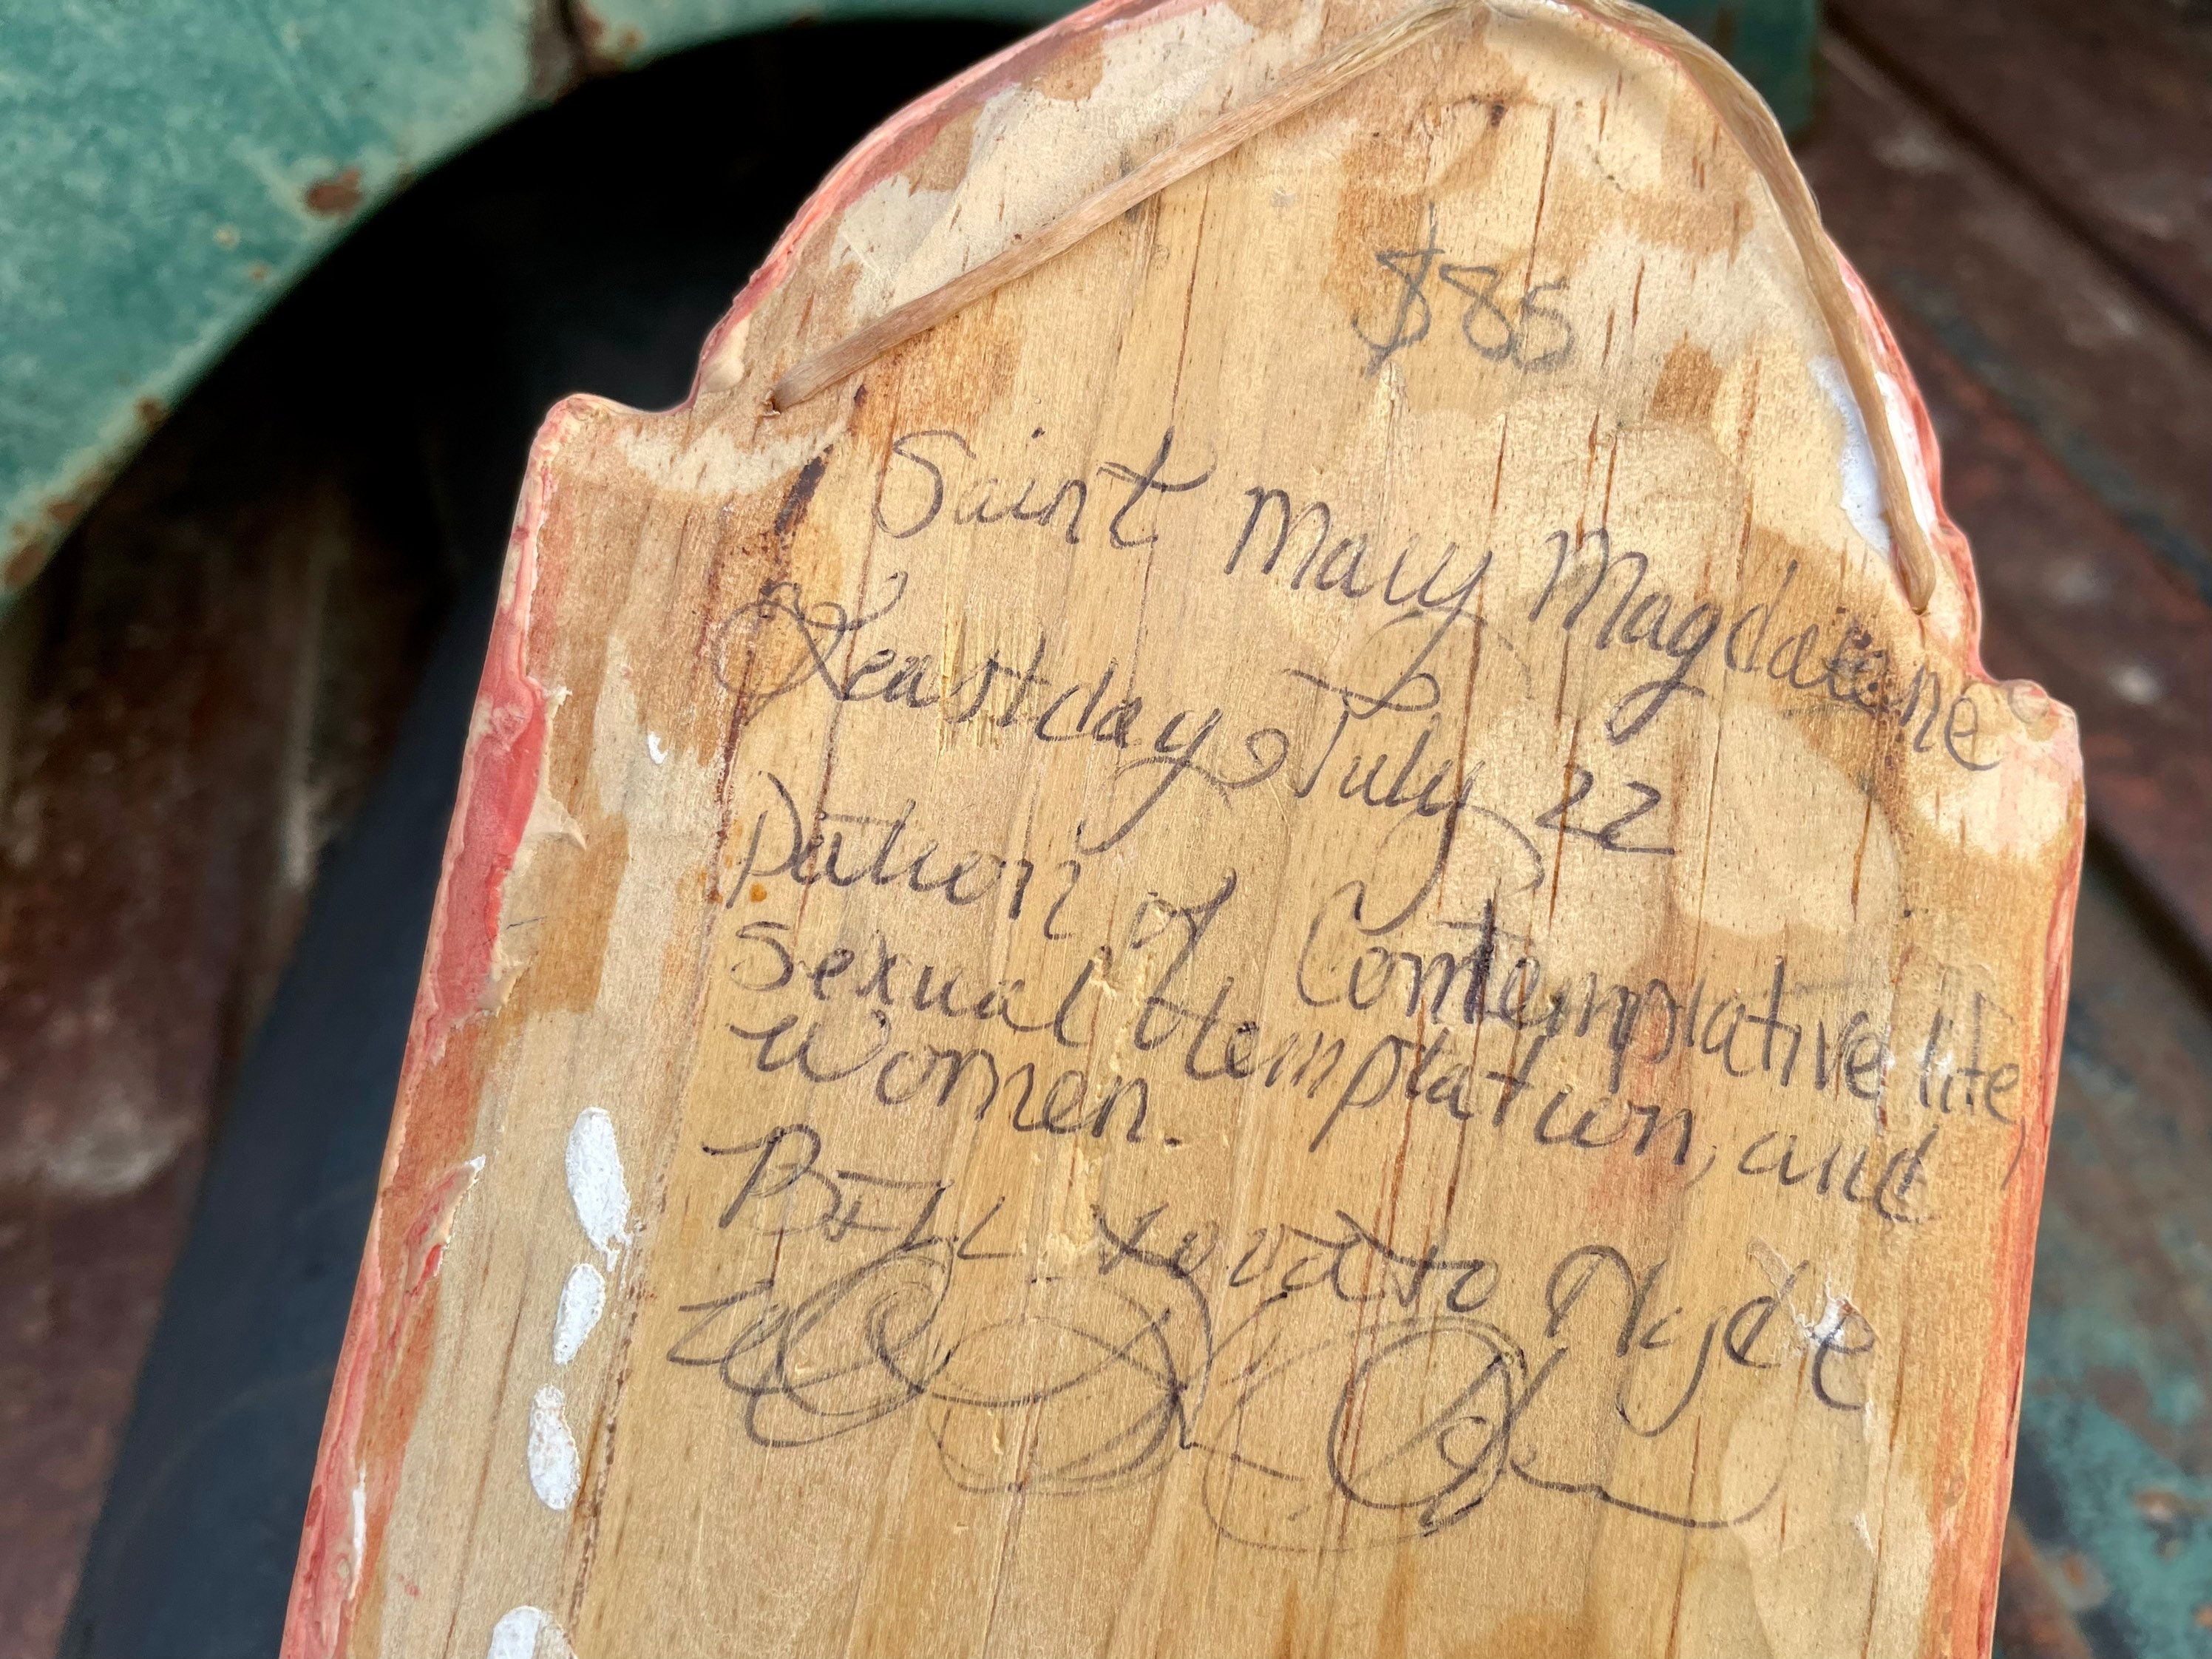 $85
Saint Mary Magdalene
Feastday July 22
Patron of Contemplative life,
Sexual temptation, and
Women.
BILL to